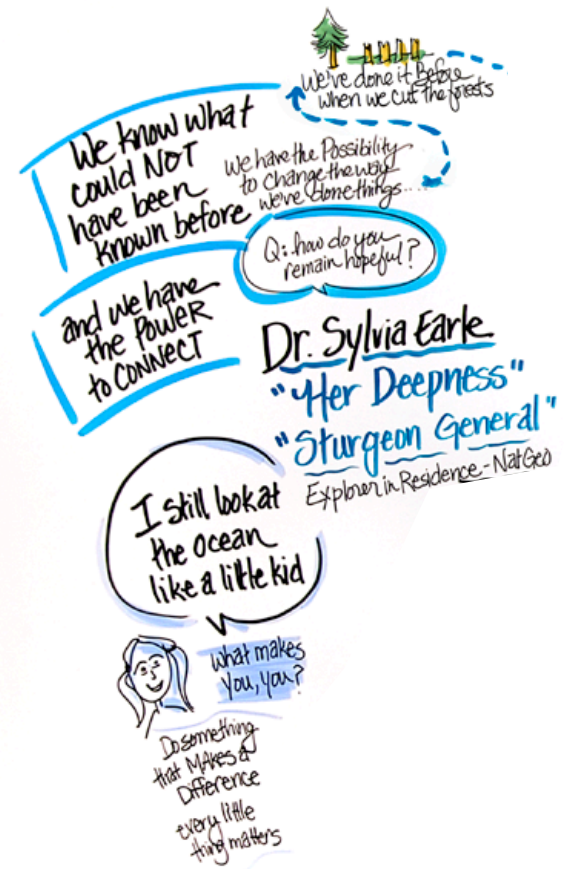 We've done it Before
when we cut the forests
We know what
could NOT
have been
known before
We have the Possibility
to change the way
we've done things....
Q: how do you
remain hopeful?
and we have
the POWER
to CONNECT
Dr. Sylvia Earle
"Her Deepness"
"Sturgeon General"
Explorer in Residence - Nat Geo
I still look at
the ocean
like a little kid
What makes
You, you?
Do something
that MAKES a
Difference
every little
thing matters